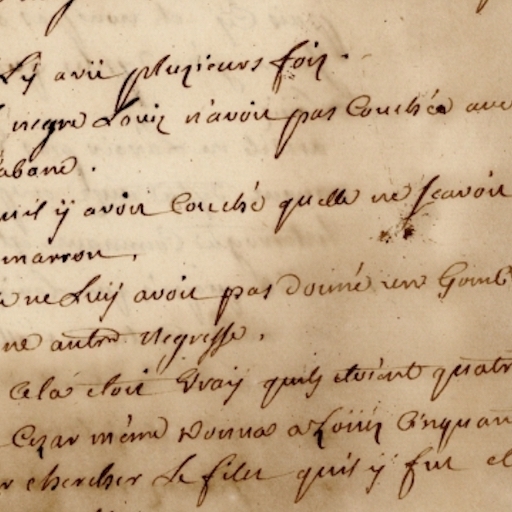 Lÿ avit plusieurs fois.
negre Louis n'avoit pas Couchée avec
abane.
uil ÿ avoit Couché quelle ne Scavoit
marron.
ne Luÿ avoit pas donné un Gomb
ne autre Negresse.
Cela etoit Vray quils etoient quatr
Cezar même donna a Loüis Cinquan
r chercher Le filet quil ÿ fut et